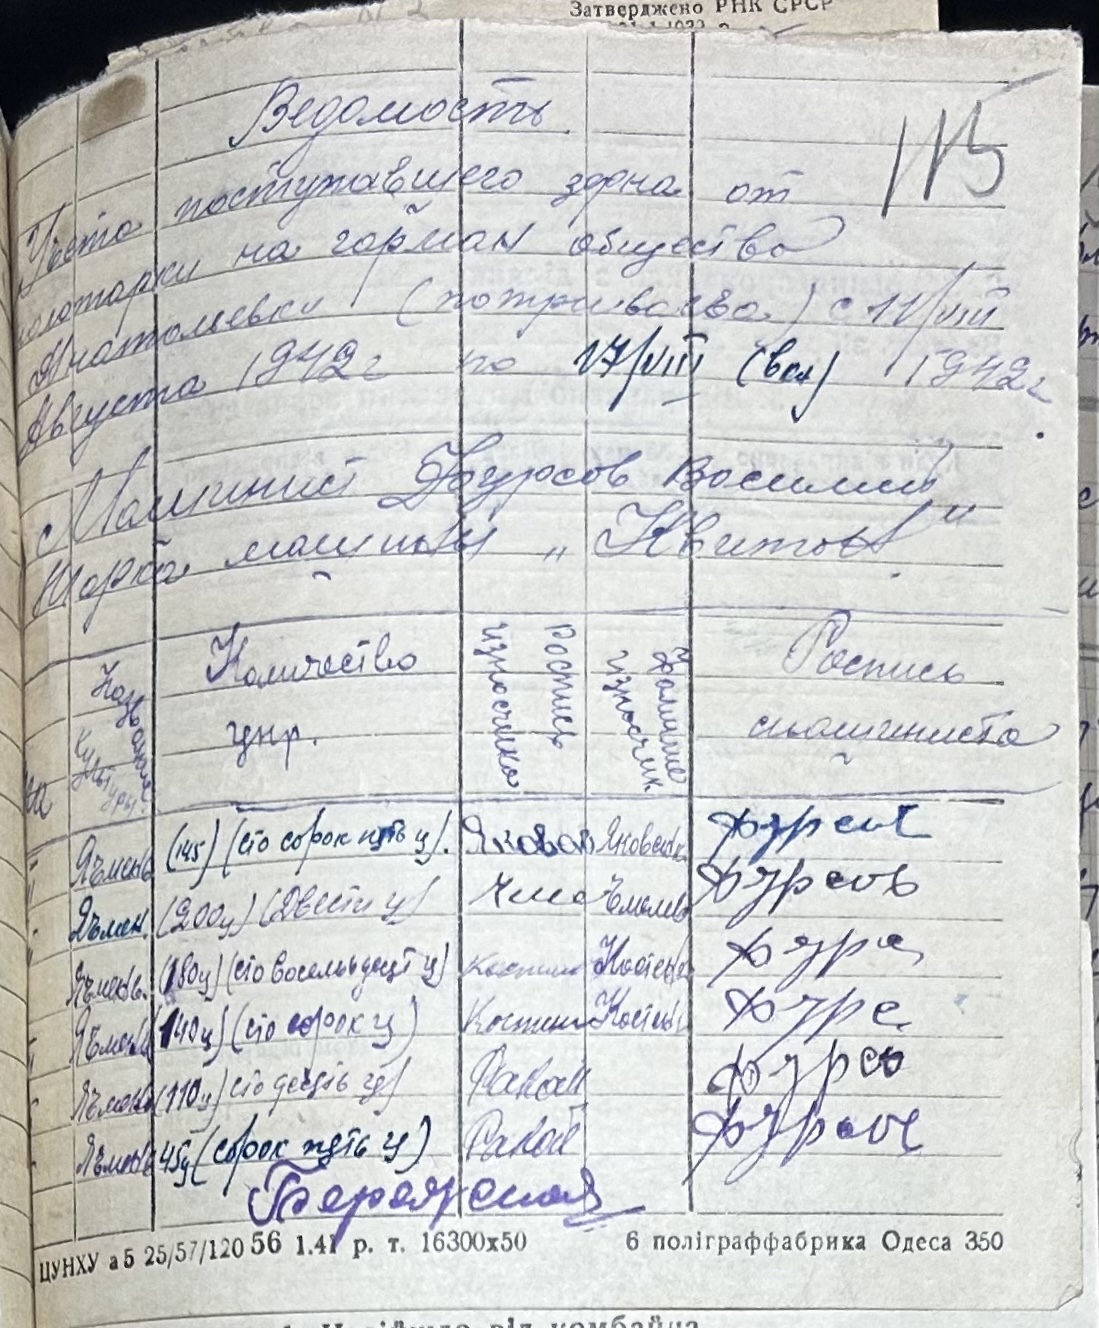 Затверджено РНК СРСР
115
Ведомость
Учёта поступавшего зерна от
молотарки на гарман общество
Анатольевки (потриваєво) с 11/VIII
Августа 1942 г по 17/VIII (вкл) 1942 г
Машинист Фурсов Василий
Марка машины „Квитов"
Название культуры
Количество цнр.
Роспись узносчика
Фамилие узносчик
Роспись смашиниста
Ячмень (145) (сто сорок пять ц). Яковов Яковенк Фурсов
Ячмен. (200ц) (Двести ц) Фурсов
Ячмень. (180ц) (сто восемьдецят ц) Костин Костен Фурс
Ячмень 140ц) (сто сорок ц) Костин Костен Фурс
Ячмень (110ц) сто десять ц) Ракой Фурсо
Ячмень 45ц (сорок пять ц) Ракой Фурсов
ЦУНХУ а5 25/57/120 56 1.41 р. т. 16300х50 6 поліграффабрика Одеса 350